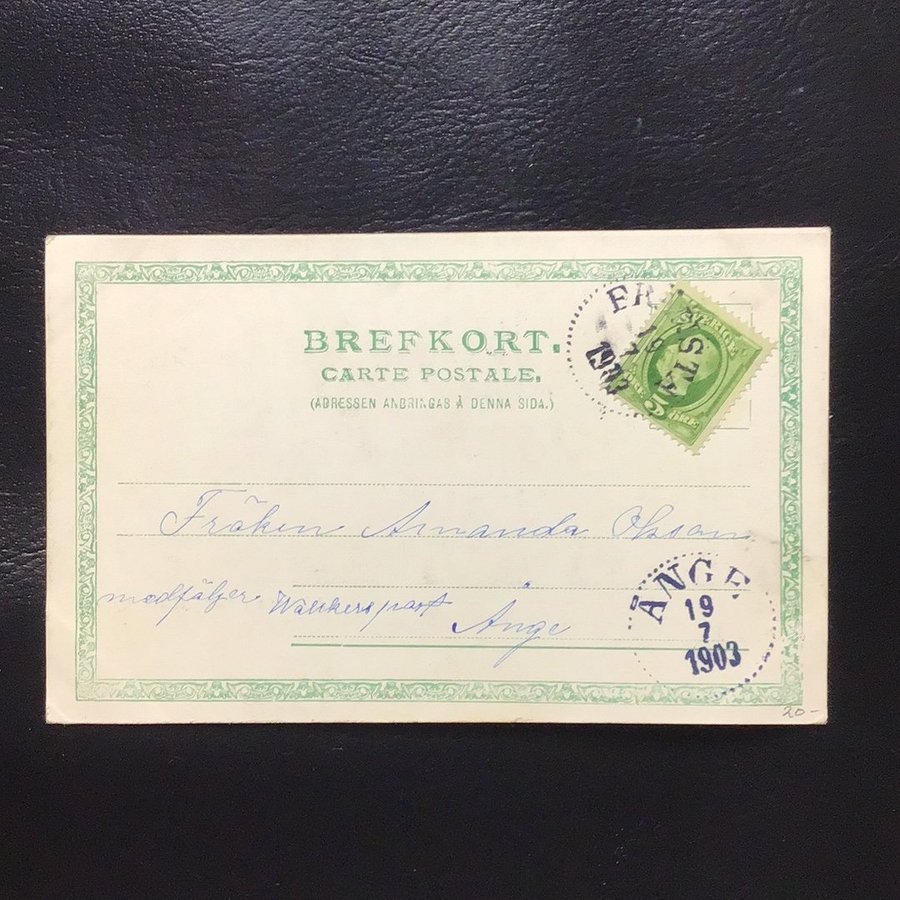 BREFKORT.
CARTE POSTALE.
(ADRESSEN ANBRINGAS Å DENNA SIDA.)
SVERIGE
5 ÖRE
19
7
1903
Fröken Amanda Olsson
medföljer
Ånge
ÅNGE
19
7
1903
20-